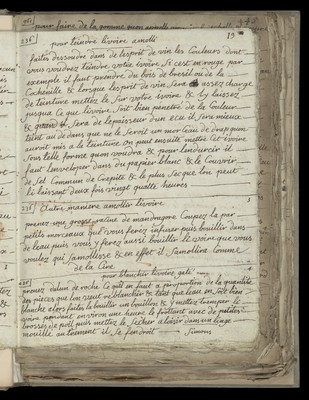 pour faire de la gomme
19
236
pour teindre livoire amolli
faites dissoudre dans de lesprit de vin les Couleurs dont
vous voudrez teindre votre ivoire si cest en rouge par
exemple il faut prendre du bois de bresil ou de la
Cochenille & lorsque lesprit de vin sera assez chargé
de teinture mettez le sur votre ivoire & ly laissez
jusqua Ce que livoire soit bien penetré de la Couleur
& quand il sera de lepaisseur dun ecu il sera mieux
teint au dedans que ne le seroit un morceau de drap quon
auroit mis a la teinture on peut ensuite mettre cet ivoire
sous telle forme quon voudra & pour lendurcir il
faut lenveloper dans du papier blanc & le Couvrir
de sel Commun de Crepité & le plus sec que lon peut
li laissant deux fois vingt quatre heures
Autre maniere amollir livoire
prenez une grosse racine de mandragore Coupez la par
petits morceaux que vous ferez infuser puis bouillir dans
de leau puis vous y ferez aussi bouillir livoire que vous
voulez qui samollisse & en effet il samollira Comme
de la Cire
pour blanchir livoire gaté
prenez dalun de roche Ce quil en faut a proportion de la quantité
des pieces que lon veut reblanchir & tant que leau en soit bien
blanche alors faites la bouillir un bouillon & y mettez tremper le
ivoire pendant environ une heure le frottant avec de petites
brosses de poil puis mettez le secher a loisir dans un linge
mouillé autrement il se fendroit